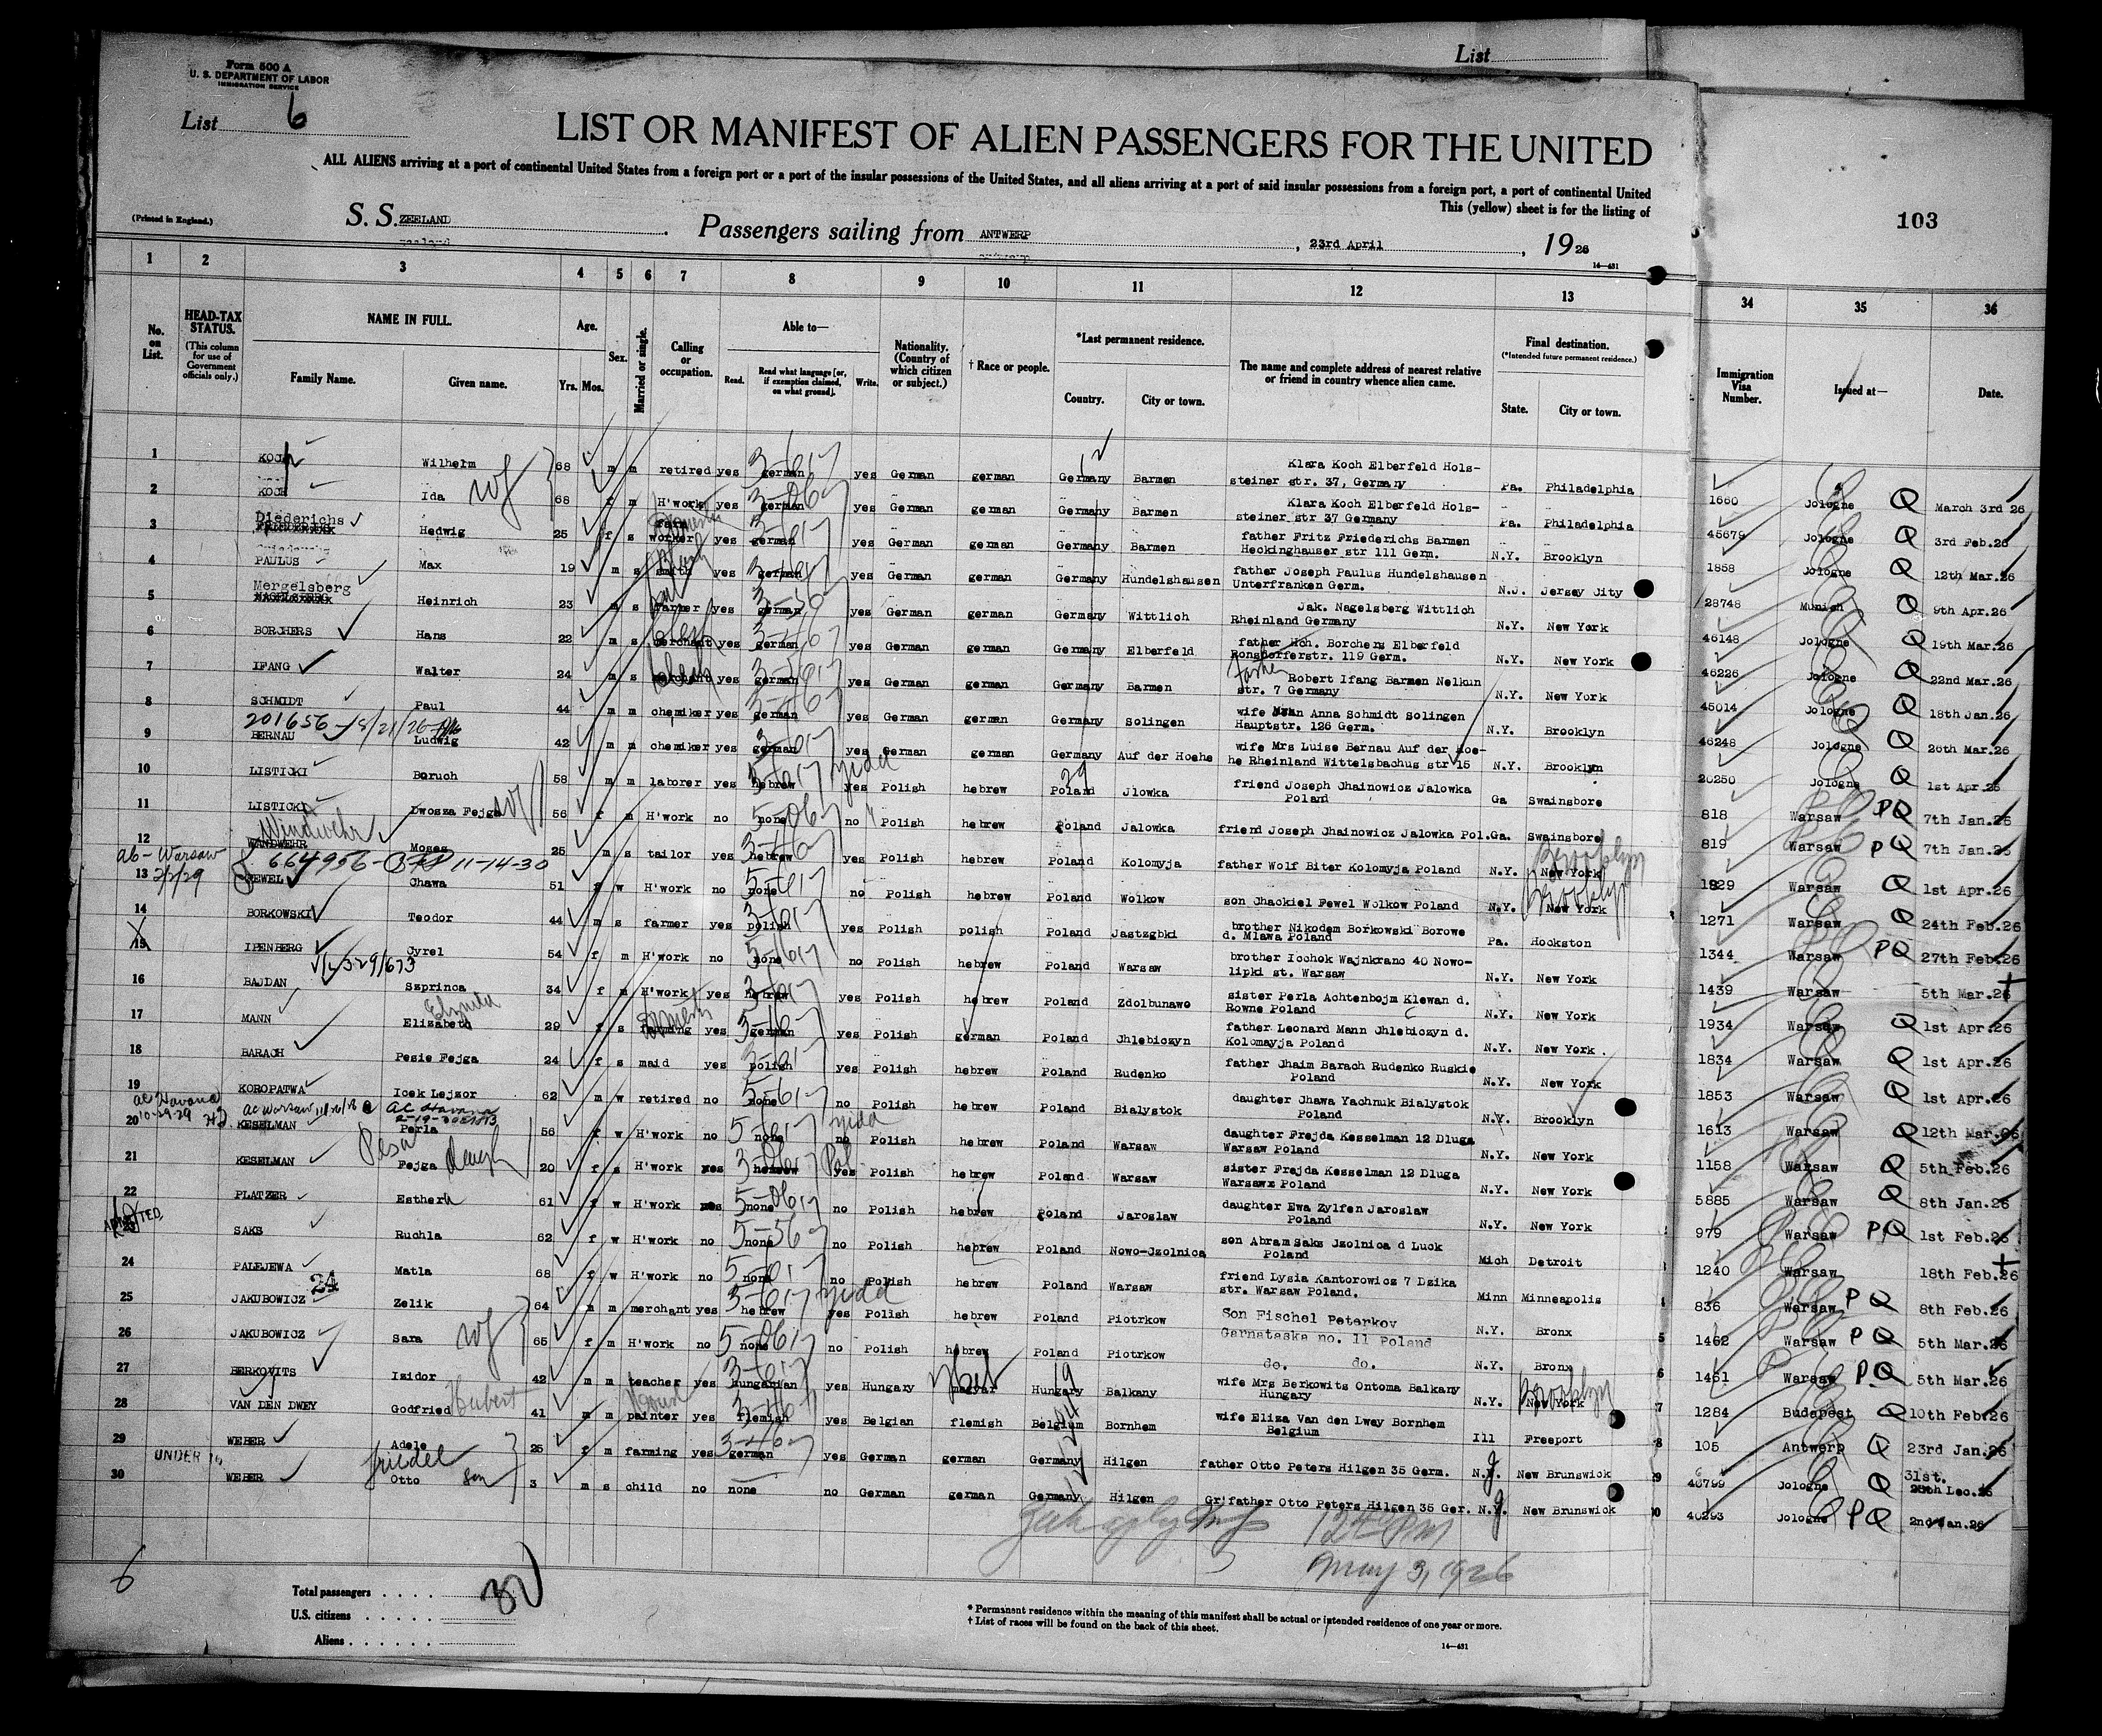 List
Form 500 A
U. S. DEPARTMENT OF LABOR
IMMIGRATION SERVICE
List 6
LIST OR MANIFEST OF ALIEN PASSENGERS FOR THE UNITED
ALL ALIENS arriving at a port of continental United States from a foreign port or a port of the insular possessions of the United States, and all aliens arriving at a port of said insular possessions from a foreign port, a port of continental United
This (yellow) sheet is for the listing of
(Printed in England.)
S. S. ZEELAND Passengers sailing from ANTWERP, 23rd April, 1926
103
14—431
1 2 3 4 5 6 7 8 9 10 11 12 13 34 35 36
No. on List. HEAD-TAX STATUS. (This column for use of Government officials only.) NAME IN FULL. Family Name. Given name. Age. Yrs. Mos. Sex. Married or single. Calling or occupation. Able to— Read. Read what language [or, if exemption claimed, on what ground]. Write. Nationality. (Country of which citizen or subject.) † Race or people. *Last permanent residence. Country. City or town. The name and complete address of nearest relative or friend in country whence alien came. Final destination. (*Intended future permanent residence.) State. City or town. Immigration Visa Number. Issued at— Date.
1 KOCH Wilhelm 68 m m retired yes german yes German german Germany Barmen Klara Koch Elberfeld Hols-steiner str. 37, Germany Pa. Philadelphia 1660 Jologne Q March 3rd 26
2 KOCH Ida wf 68 f m H'work yes german yes German german Germany Barmen Klara Koch Elberfeld Hols-steiner str 37 Germany Pa. Philadelphia 45679 Jologne Q 3rd Feb.26
3 Diederichs Hedwig 25 f s farm worker yes german yes German german Germany Barmen father Fritz Friederichs Barmen Heckinghauser str 111 Germ. N.Y. Brooklyn 1858 Jologne Q 12th Mar.26
4 PAULUS Max 19 m s smith yes german yes German german Germany Hundelshausen father Joseph Paulus Hundelshausen Unterfranken Germ. N.J. Jersey City 28748 Munich Q 9th Apr.26
5 Mergelsberg Heinrich 23 m s farmer yes german yes German german Germany Wittlich Jak. Nagelsberg Wittlich Rheinland Germany N.Y. New York 46148 Jologne Q 19th Mar.26
6 BORCHERS Hans 22 m s merchant yes german yes German german Germany Elberfeld father Hch. Borchers Elberfeld Ronsdorferstr. 119 Germ. N.Y. New York 46226 Jologne Q 22nd Mar.26
7 IFANG Walter 24 m s merchant yes german yes German german Germany Barmen Father Robert Ifang Barmen Nelkun str. 7 Germany N.Y. New York 45014 Jologne Q 18th Jan.26
8 SCHMIDT Paul 44 m m chemiker yes german yes German german Germany Solingen wife Anna Schmidt Solingen Hauptstr. 126 Germ. N.Y. Brooklyn 46248 Jologne Q 26th Mar.26
201656 - 8/21/26
9 BERNAU Ludwig 42 m m chemiker yes german yes German german Germany Auf der Hoehe wife Mrs Luise Bernau Auf der Hoe-he Rheinland Wittelsbachus str 15 N.Y. Brooklyn 20250 Jologne Q 1st Apr.26
10 LISTICKI Boruch 58 m m laborer yes hebrew yidd yes Polish hebrew Poland Jlowka friend Joseph Jhainowicz Jalowka Poland Ga Swainsbore 818 Warsaw PQ 7th Jan.26
11 LISTICKI Dwosza Fejga wf 56 f m H'work no none no Polish hebrew Poland Jalowka friend Joseph Jhainowicz Jalowka Pol. Ga. Swainsbore 819 Warsaw PQ 7th Jan.26
12 Windwehr WANDWEHR Moses 25 m s tailor yes hebrew yes Polish hebrew Poland Kolomyja father Wolf Biter Kolomyja Poland N.Y. New York Brooklyn 1929 Warsaw Q 1st Apr.26
ab - Warsaw 2/2/29 664956 - 11-14-30
13 FEWEL Jhawa 51 f w H'work no none no Polish hebrew Poland Wolkow son Chackiel Fewel Wolkow Poland N.Y. New York Brooklyn 1271 Warsaw Q 24th Feb.26
14 BORKOWSKI Teodor 44 m s farmer yes polish yes Polish polish Poland Jastzgbki brother Nikodem Borkowski Borowe d. Mlawa Poland Pa. Hookston 1344 Warsaw PQ 27th Feb.26
15 IPENBERG Cyrel 54 f m H'work no none no Polish hebrew Poland Warsaw brother Icchok Wajnkranc 40 Nowo-lipki st. Warsaw N.Y. New York 1439 Warsaw 5th Mar.26
16 BAJDAN Szprinca 34 f m H'work yes hebrew yes Polish hebrew Poland Zdolbunawo sister Perla Achtenbojm Klewan d. Rowne Poland N.Y. New York 1934 Warsaw Q 1st Apr.26
17 MANN Elizabeth 29 f s farming yes german yes Polish german Poland Jhlebiczyn father Leonard Mann Jhlebiczyn d. Kolomayja Poland N.Y. New York 1834 Warsaw Q 1st Apr.26
18 BARACH Pesie Fejga 24 f s maid yes polish yes Polish hebrew Poland Rudenko father Jhaim Barach Rudenko Ruskie Poland N.Y. New York 1853 Warsaw Q 1st Apr.26
19 KOROPATWA Icek Lejzor 62 m w retired no none no Polish hebrew Poland Bialystok daughter Jhawa Yachnuk Bialystok Poland N.Y. Brooklyn 1613 Warsaw Q 12th Mar.26
ac Havana 10-29-29 ac Warsaw ac Havana
20 KESELMAN Perla 56 f w H'work no none yidd no Polish hebrew Poland Warsaw daughter Frejda Kesselman 12 Dluga Warsaw Poland N.Y. New York 1158 Warsaw Q 5th Feb.26
21 KESELMAN Pesa Fejga Daugh 20 f s H'work yes hebrew Pol yes Polish hebrew Poland Warsaw sister Frejda Kesselman 12 Dluga Warsaw Poland N.Y. New York 5885 Warsaw Q 8th Jan.26
22 PLATZER Esther 61 f w H'work none no Polish hebrew Poland Jaroslaw daughter Ewa Zylfen Jaroslaw Poland N.Y. New York 979 Warsaw PQ 1st Feb.26
ADMITTED
23 SAKS Ruchla 62 f w H'work no none no Polish hebrew Poland Nowo-Jzolnica son Abram Saks Jzolnica d Luck Poland Mich Detroit 1240 Warsaw 18th Feb.26
24 PALEJEWA Matla 68 f w H'work no none no Polish hebrew Poland Warsaw friend Lysia Kantorowicz 7 Dzika str. Warsaw Poland. Minn Minneapolis 836 Warsaw PQ 8th Feb.26
25 JAKUBOWICZ 24 Zelik 64 m m merchant yes hebrew yidd yes Polish hebrew Poland Piotrkow Son Fischel Peterkov Garnataska no. 11 Poland N.Y. Bronx 1462 Warsaw PQ 5th Mar.26
26 JAKUBOWICZ Sara wf 65 f m H'work no none no Polish hebrew Poland Piotrkow do. do. N.Y. Bronx 1461 Warsaw PQ 5th Mar.26
27 BERKOVITS Izidor 42 m m teacher yes hungarian yes Hungary magyar Heb Hungary Balkany wife Mrs Berkowits Ontoma Balkany Hungary N.Y. New York Brooklyn 1284 Budapest Q 10th Feb.26
28 VAN DEN DWEY Godfried Hubert 41 m m painter yes flemish yes Belgian flemish Belgium Bornhem wife Eliza Van den Lwey Bornhem Belgium Ill Freeport 105 Antwerp Q 23rd Jan.26
29 WEBER Adele 25 f m farming yes german yes German german Germany Hilgen father Otto Peters Hilgen 35 Germ. N.J. New Brunswick 46799 Jologne Q 31st. Dec.25
UNDER 16
30 WEBER Friedel Otto son 3 m s child no none no German german Germany Hilgen Gr'father Otto Peters Hilgen 35 Ger. N.J. New Brunswick 40293 Jologne PQ 2nd Jan.26
12 PM
May 3, 1926
6
Total passengers . . . . 30
U.S. citizens . . . . .
Aliens . . . . . .
* Permanent residence within the meaning of this manifest shall be actual or intended residence of one year or more.
† List of races will be found on the back of this sheet.
14—431